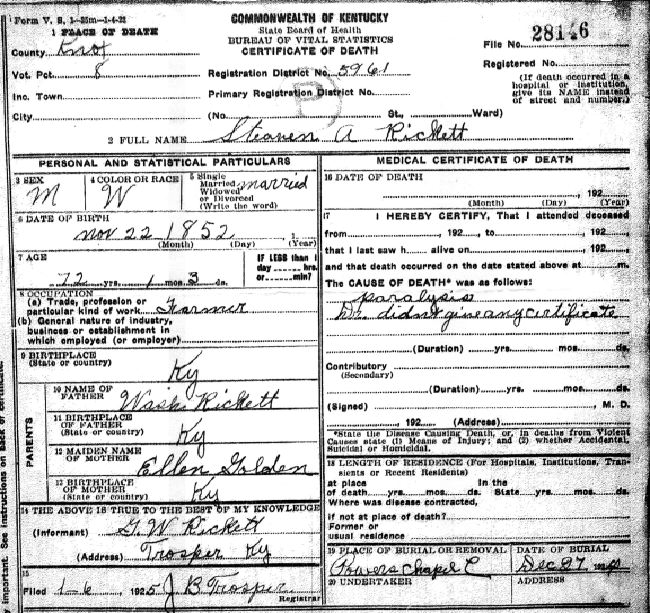 Form V. S. 1-25m-1-4-22
COMMONWEALTH OF KENTUCKY
State Board of Health
BUREAU OF VITAL STATISTICS
CERTIFICATE OF DEATH
File No. 28146
Registered No.
(If death occurred in a hospital or institution, give its NAME instead of street and number.)
1 PLACE OF DEATH
County Knox
Vot. Pct. 8
Inc. Town
City
Registration District No. 5961
Primary Registration District No.
(No. St., Ward)
2 FULL NAME Steaven A Rickett
PERSONAL AND STATISTICAL PARTICULARS
3 SEX
M
4 COLOR OR RACE
W
5 Single
Married
Widowed
or Divorced
(Write the word)
married
6 DATE OF BIRTH
Nov 22 1852
(Month) (Day) (Year)
7 AGE
72 yrs. 1 mos. 3 ds.
IF LESS than 1
day hrs.
or min?
8 OCCUPATION
(a) Trade, profession or
particular kind of work Farmer
(b) General nature of industry,
business or establishment in
which employed (or employer)
9 BIRTHPLACE
(State or country)
Ky
PARENTS
10 NAME OF
FATHER
Wash Rickett
11 BIRTHPLACE
OF FATHER
(State or country)
Ky
12 MAIDEN NAME
OF MOTHER
Ellen Golden
13 BIRTHPLACE
OF MOTHER
(State or country)
Ky
14 THE ABOVE IS TRUE TO THE BEST OF MY KNOWLEDGE
(Informant) G. W Rickett
(Address) Trosper Ky
15
Filed 1-6 1925 J B Trosper
Registrar
MEDICAL CERTIFICATE OF DEATH
16 DATE OF DEATH
, 192
(Month) (Day) (Year)
17 I HEREBY CERTIFY, That I attended deceased
from , 192 , to , 192 ,
that I last saw h alive on , 192 ,
and that death occurred on the date stated above at m.
The CAUSE OF DEATH* was as follows:
paralysis
Dr. didnt give any certificate
(Duration) yrs. mos. ds.
Contributory
(Secondary)
(Duration) yrs. mos. ds.
(Signed) , M. D.
, 192 (Address)
*State the Disease Causing Death, or, in deaths from Violent
Causes state (1) Means of Injury; and (2) whether Accidental,
Suicidal or Homicidal.
18 LENGTH OF RESIDENCE (For Hospitals, Institutions, Transients or Recent Residents)
at place In the
of death yrs. mos. ds. State yrs. mos. ds.
Where was disease contracted,
if not at place of death?
Former or
usual residence
19 PLACE OF BURIAL OR REMOVAL
Powers Chapel C
DATE OF BURIAL
Dec 27, 1924
20 UNDERTAKER
ADDRESS